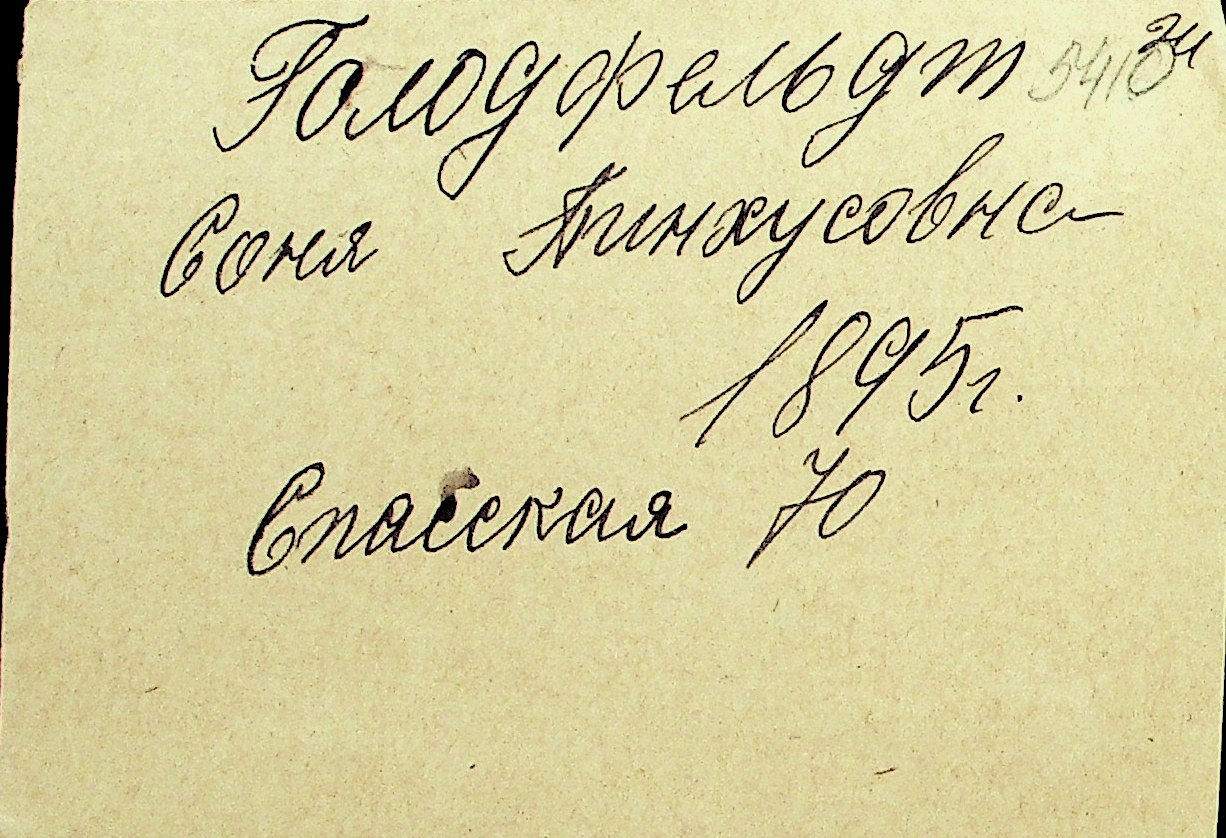 Голодфельдт 5410
Соня Пинхусовна
1895г.
Спасская 70